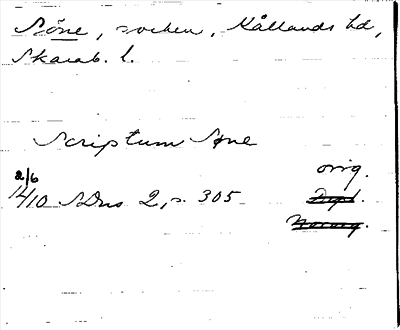 Söne, socken, Kållands hd,
Skarab. l.
Scriptum Söne
orig.
2/6
1410 SDns 2, s. 305 Dipl.
Norveg.